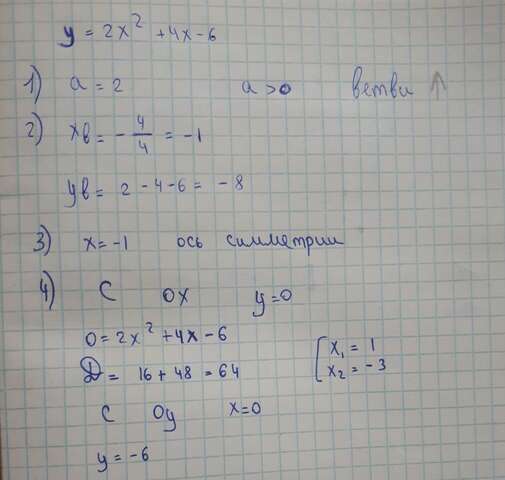 y = 2x² + 4x - 6
1) a = 2 a > 0 ветви ↑
2) xв = - 4/4 = -1
yв = 2 - 4 - 6 = -8
3) x = -1 ось симметрии
4) С OX y = 0
0 = 2x² + 4x - 6
D = 16 + 48 = 64
[ x₁ = 1
x₂ = -3
С Oy x = 0
y = -6